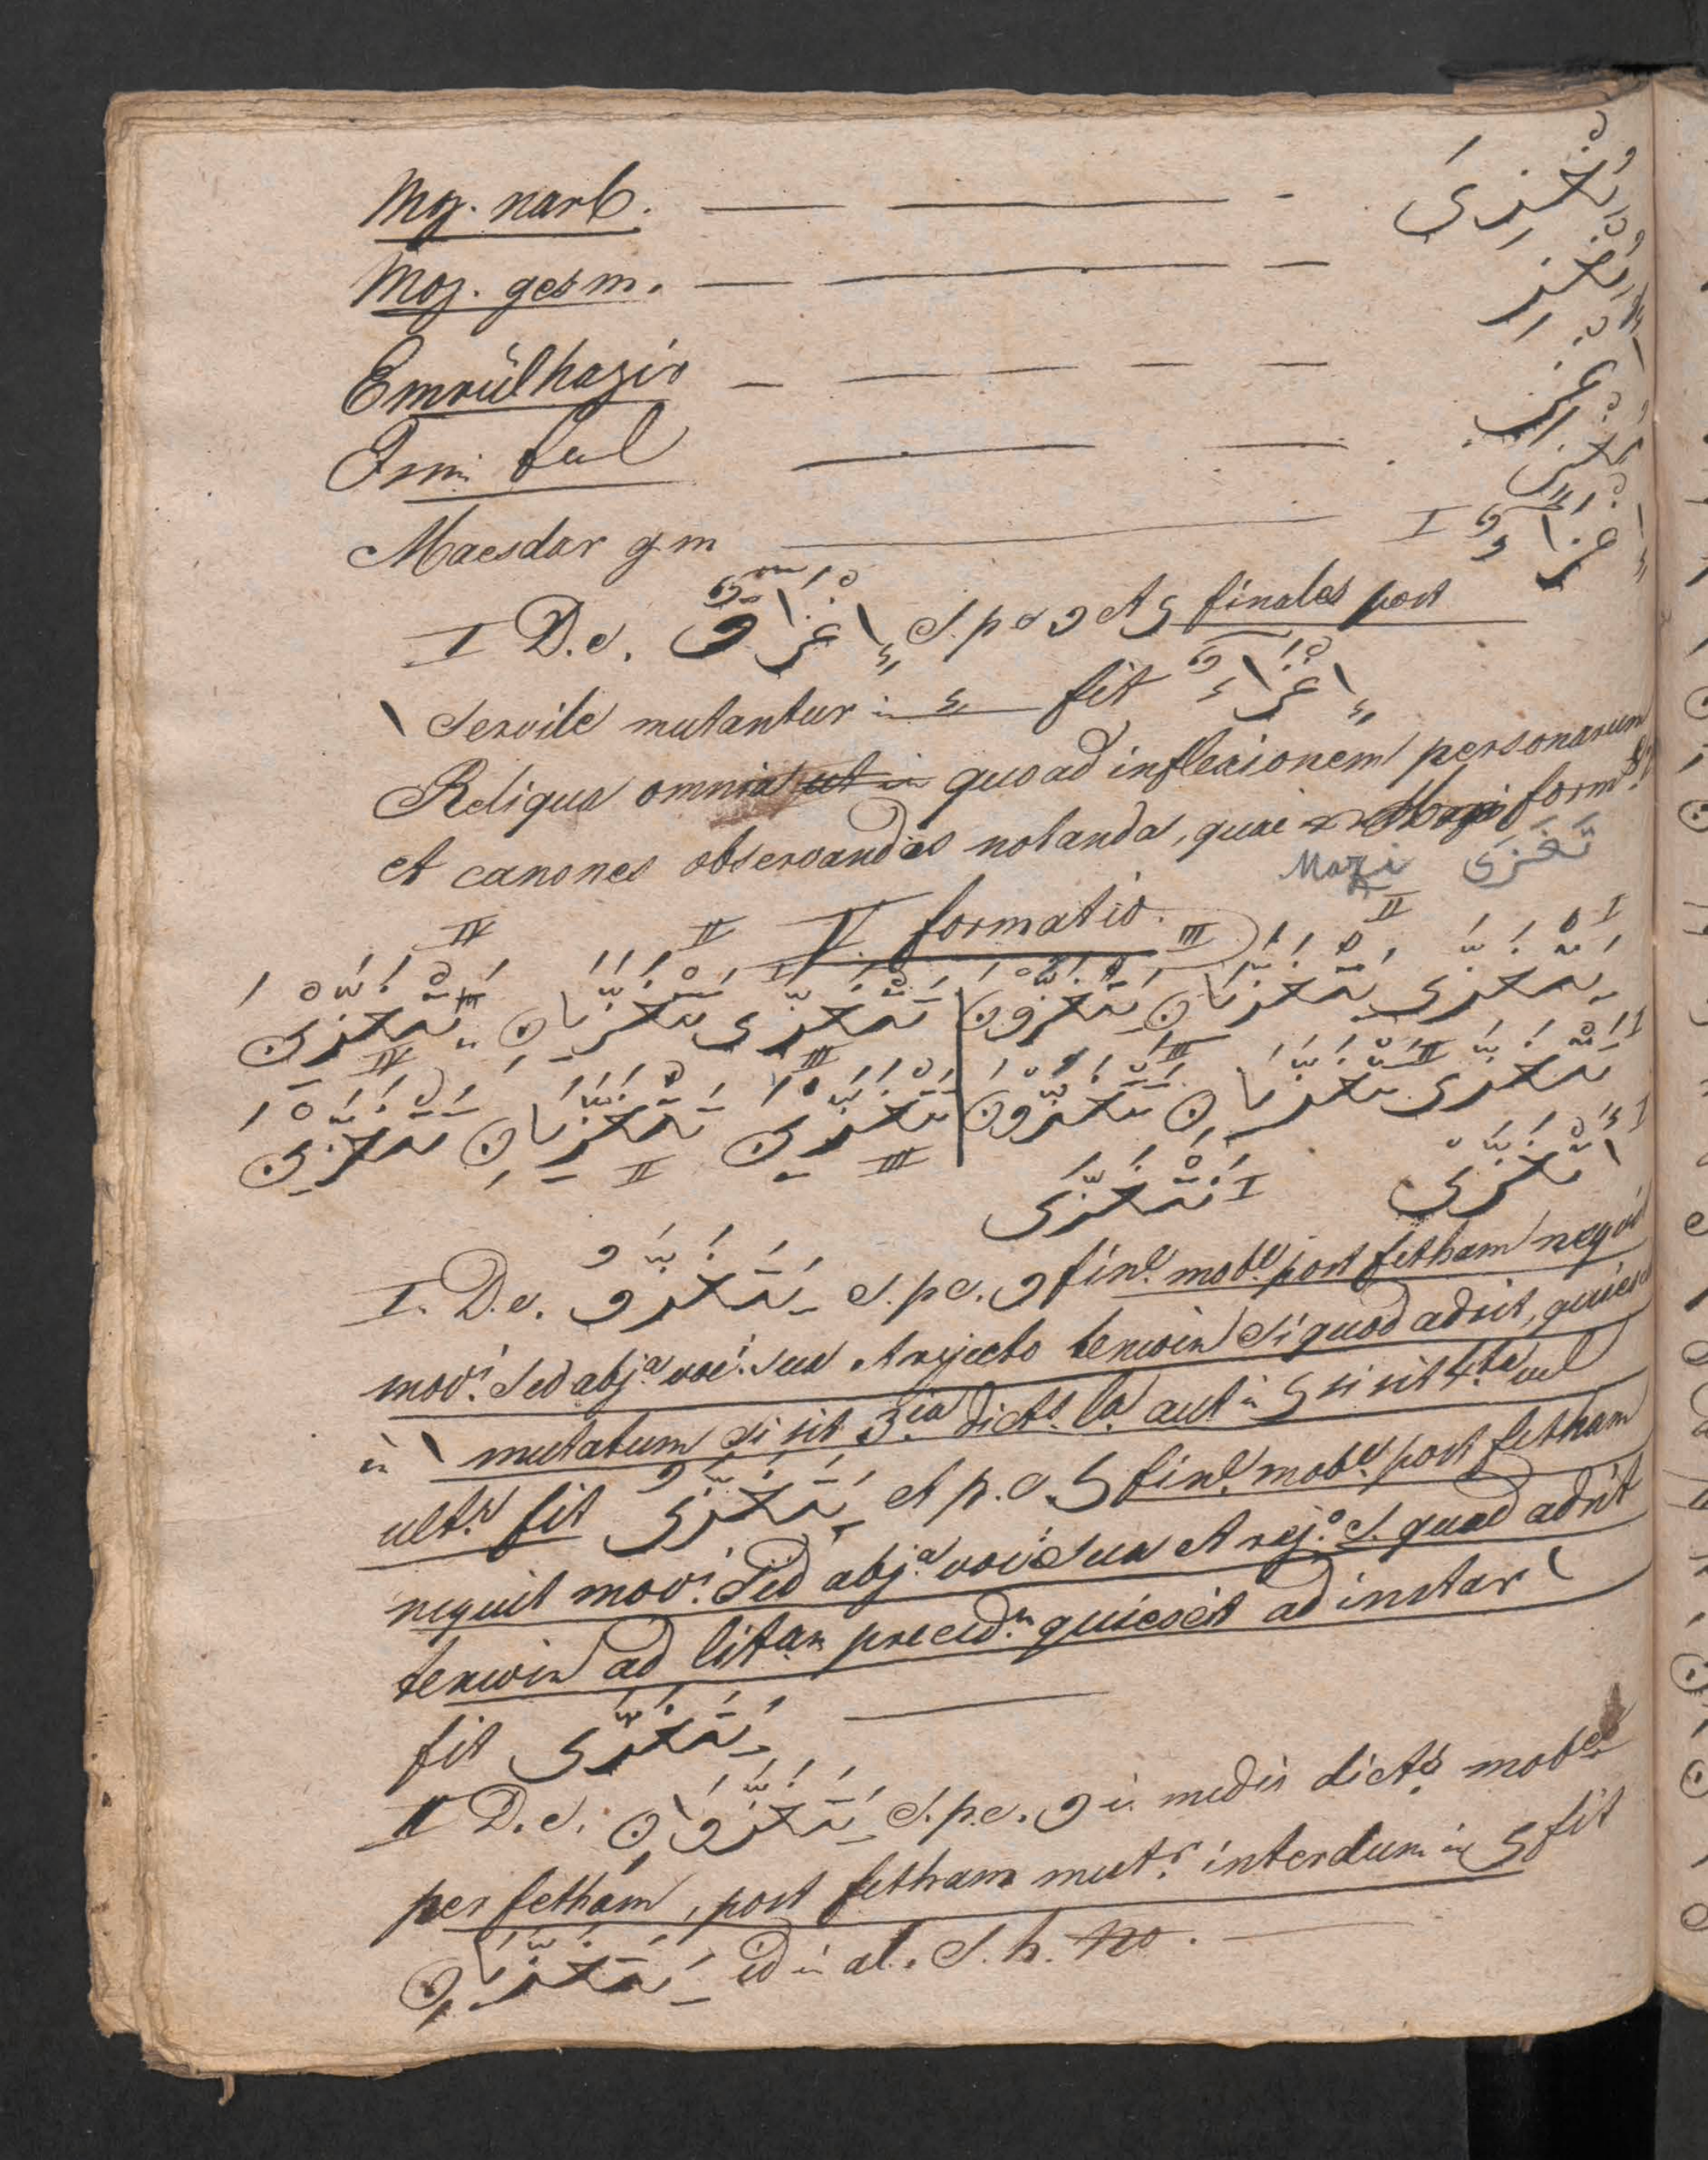 Moz. narb. — — - يُغْزِىَ
Moz. gesm. — — — يُغْزِ
Emrülhazir — — — —
Ismi feul — —
Maesdar gm — I إِغْزَاءٌ
I D.e. إِغْزَاوٌ S.p.e و et ى finales post
ا servile mutantur in ء fit إِغْزَاءٌ
Reliqua omnia ut in quoad inflexionem personarum
et canones observandos notanda, quae Mazi form
Mazi تَغَزَّى
V formatio.
يَتَغَزَّى يَتَغَزَّيَانِ يَتَغَزَّوْنَ تَتَغَزَّى تَتَغَزَّيَانِ يَتَغَزَّيْنَ
تَتَغَزَّى تَتَغَزَّيَانِ تَتَغَزَّوْنَ تَتَغَزَّيْنَ تَتَغَزَّيَانِ تَتَغَزَّيْنَ
أَتَغَزَّى نَتَغَزَّى
I. D.e. يَتَغَزَّوُ S.p.e. و finl. mobl. post fetham nequit
movi. Sed abja voc. sua et rejecto tenwin si quod adsit, quiescit
in ا mutatum si sit 3.ia dicts. la. aut in ى si sit 4.ta vel
ultr. fit يَتَغَزَّىُ et p.e. ى finl. mobl. post fetham
nequit movi. Sed abja. voc. sua et rejo. S. quod adsit
tenwin ad litam preced.m quiescit ad instar ا
fit يَتَغَزَّى —
II D.e. يَتَغَزَّوَانِ S.p.e. و in medio dicts. mobe
per fetham, post fetham mutr. interdum in ى fit
يَتَغَزَّيَانِ id in al. S. h. no. —